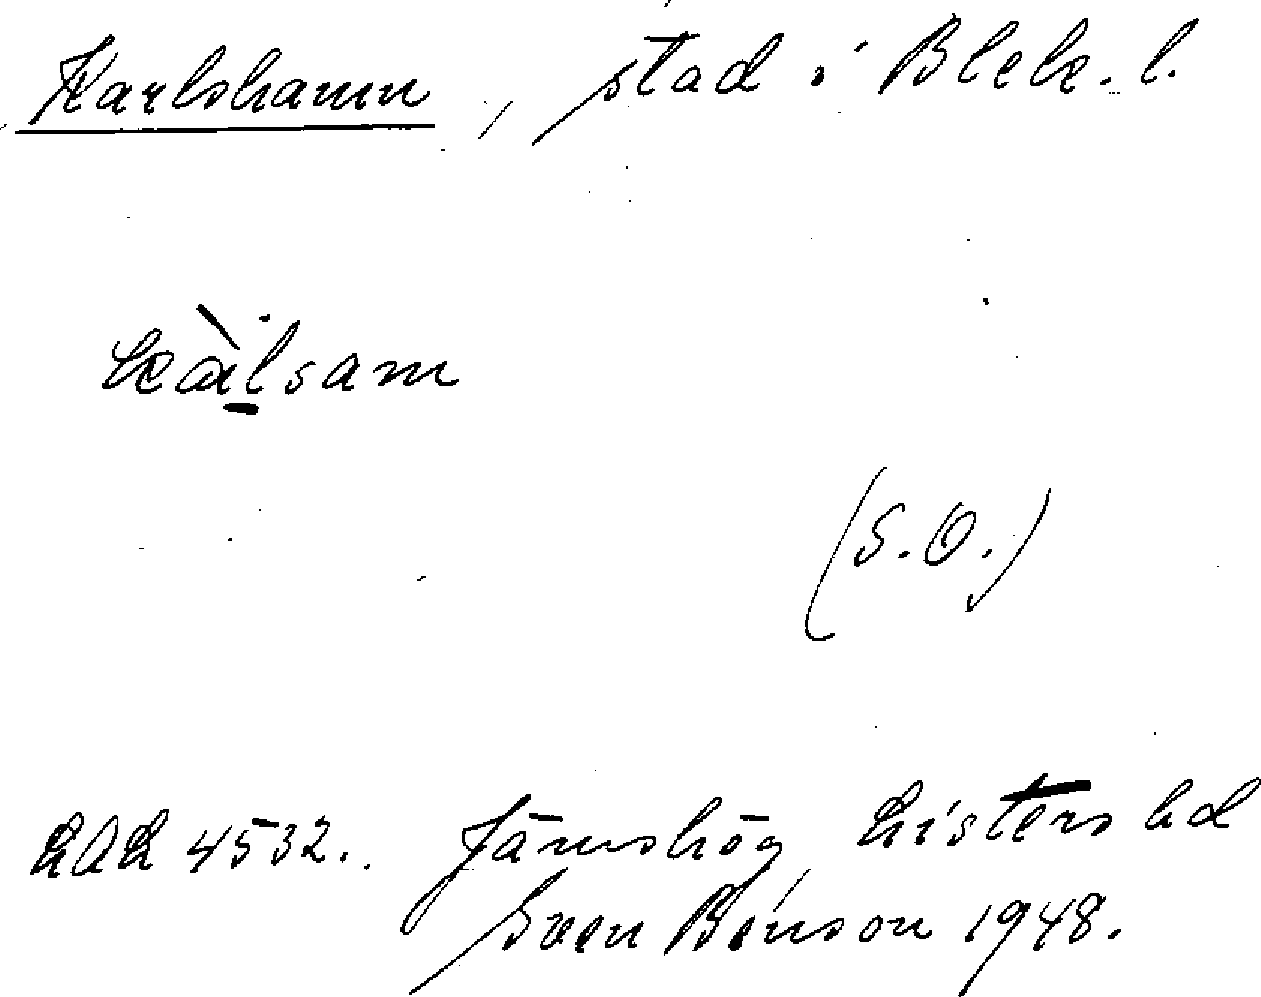 Karlshamn, stad i Blek. l.
kàilsam
(S.O.)
LAL 4532. Jämshög, Listers hd
Sven Benson 1948.